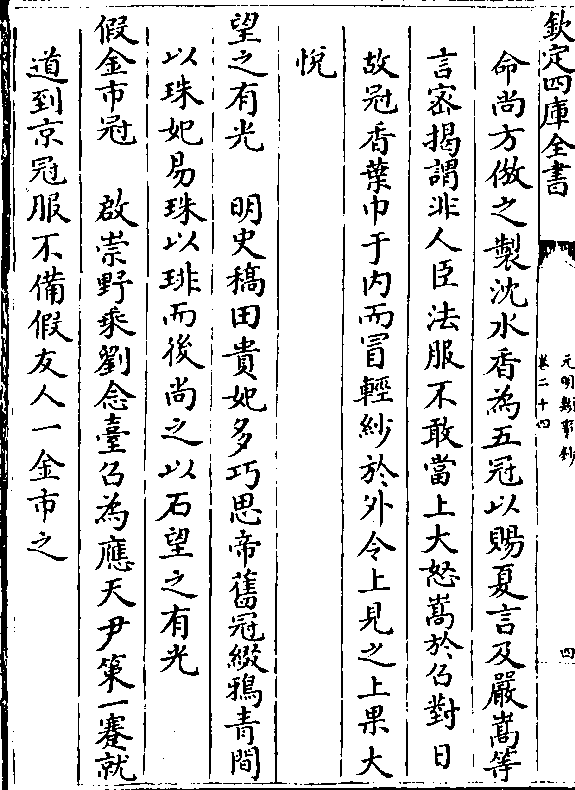 欽定四庫全書
元明類事鈔
卷二十四
四
命尚方倣之製沈水香為五冠以賜夏言及嚴嵩等
言密揭謂非人臣法服不敢當上大怒嵩於召對日
故冠香葉巾于内而冒輕紗於外令上見之上果大
悅
望之有光　明史稿田貴妃多巧思帝舊冠綴鴉青間
以珠妃易珠以琲而後尚之以石望之有光
假金市冠　啟崇野乘劉念臺召為應天尹第一蹇就
道到京冠服不備假友人一金市之